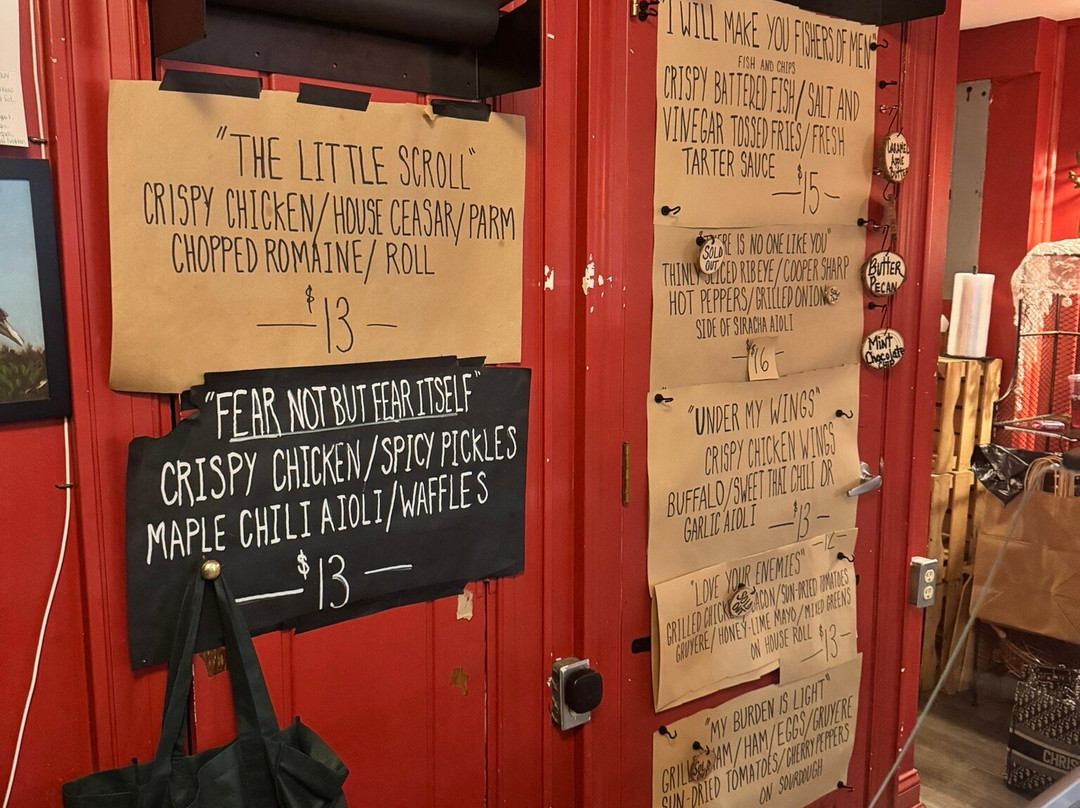 "THE LITTLE SCROLL"
CRISPY CHICKEN/HOUSE CEASAR/PARM
CHOPPED ROMAINE/ ROLL
— $13 —
"FEAR NOT BUT FEAR ITSELF"
CRISPY CHICKEN/SPICY PICKLES
MAPLE CHILI AIOLI/WAFFLES
— $13 —
"I WILL MAKE YOU FISHERS OF MEN"
FISH AND CHIPS
CRISPY BATTERED FISH/SALT AND
VINEGAR TOSSED FRIES/FRESH
TARTER SAUCE
— $15 —
IS NO ONE LIKE YOU"
SOLD
OUT
RIBEYE/COOPER SHARP
HOT PEPPERS/GRILLED ONION
SIDE OF SIRACHA AIOLI
— $16 —
"UNDER MY WINGS"
CRISPY CHICKEN WINGS
BUFFALO/SWEET THAI CHILI OR
GARLIC AIOLI — $13 —
— 12 —
"LOVE YOUR ENEMIES"
GRILLED /SUN-DRIED TOMATOES
GRUYERE/HONEY-LIME MAYO/MIXED GREENS
ON HOUSE ROLL $13 —
"MY BURDEN IS LIGHT"
/HAM/EGGS/GRUYERE
SUN-DRIED TOMATOES/CHERRY PEPPERS
ON SOURDOUGH
CARAMEL
APPLE
BUTTER
PECAN
MINT
CHOCOLATE
CHIP
CHRIS